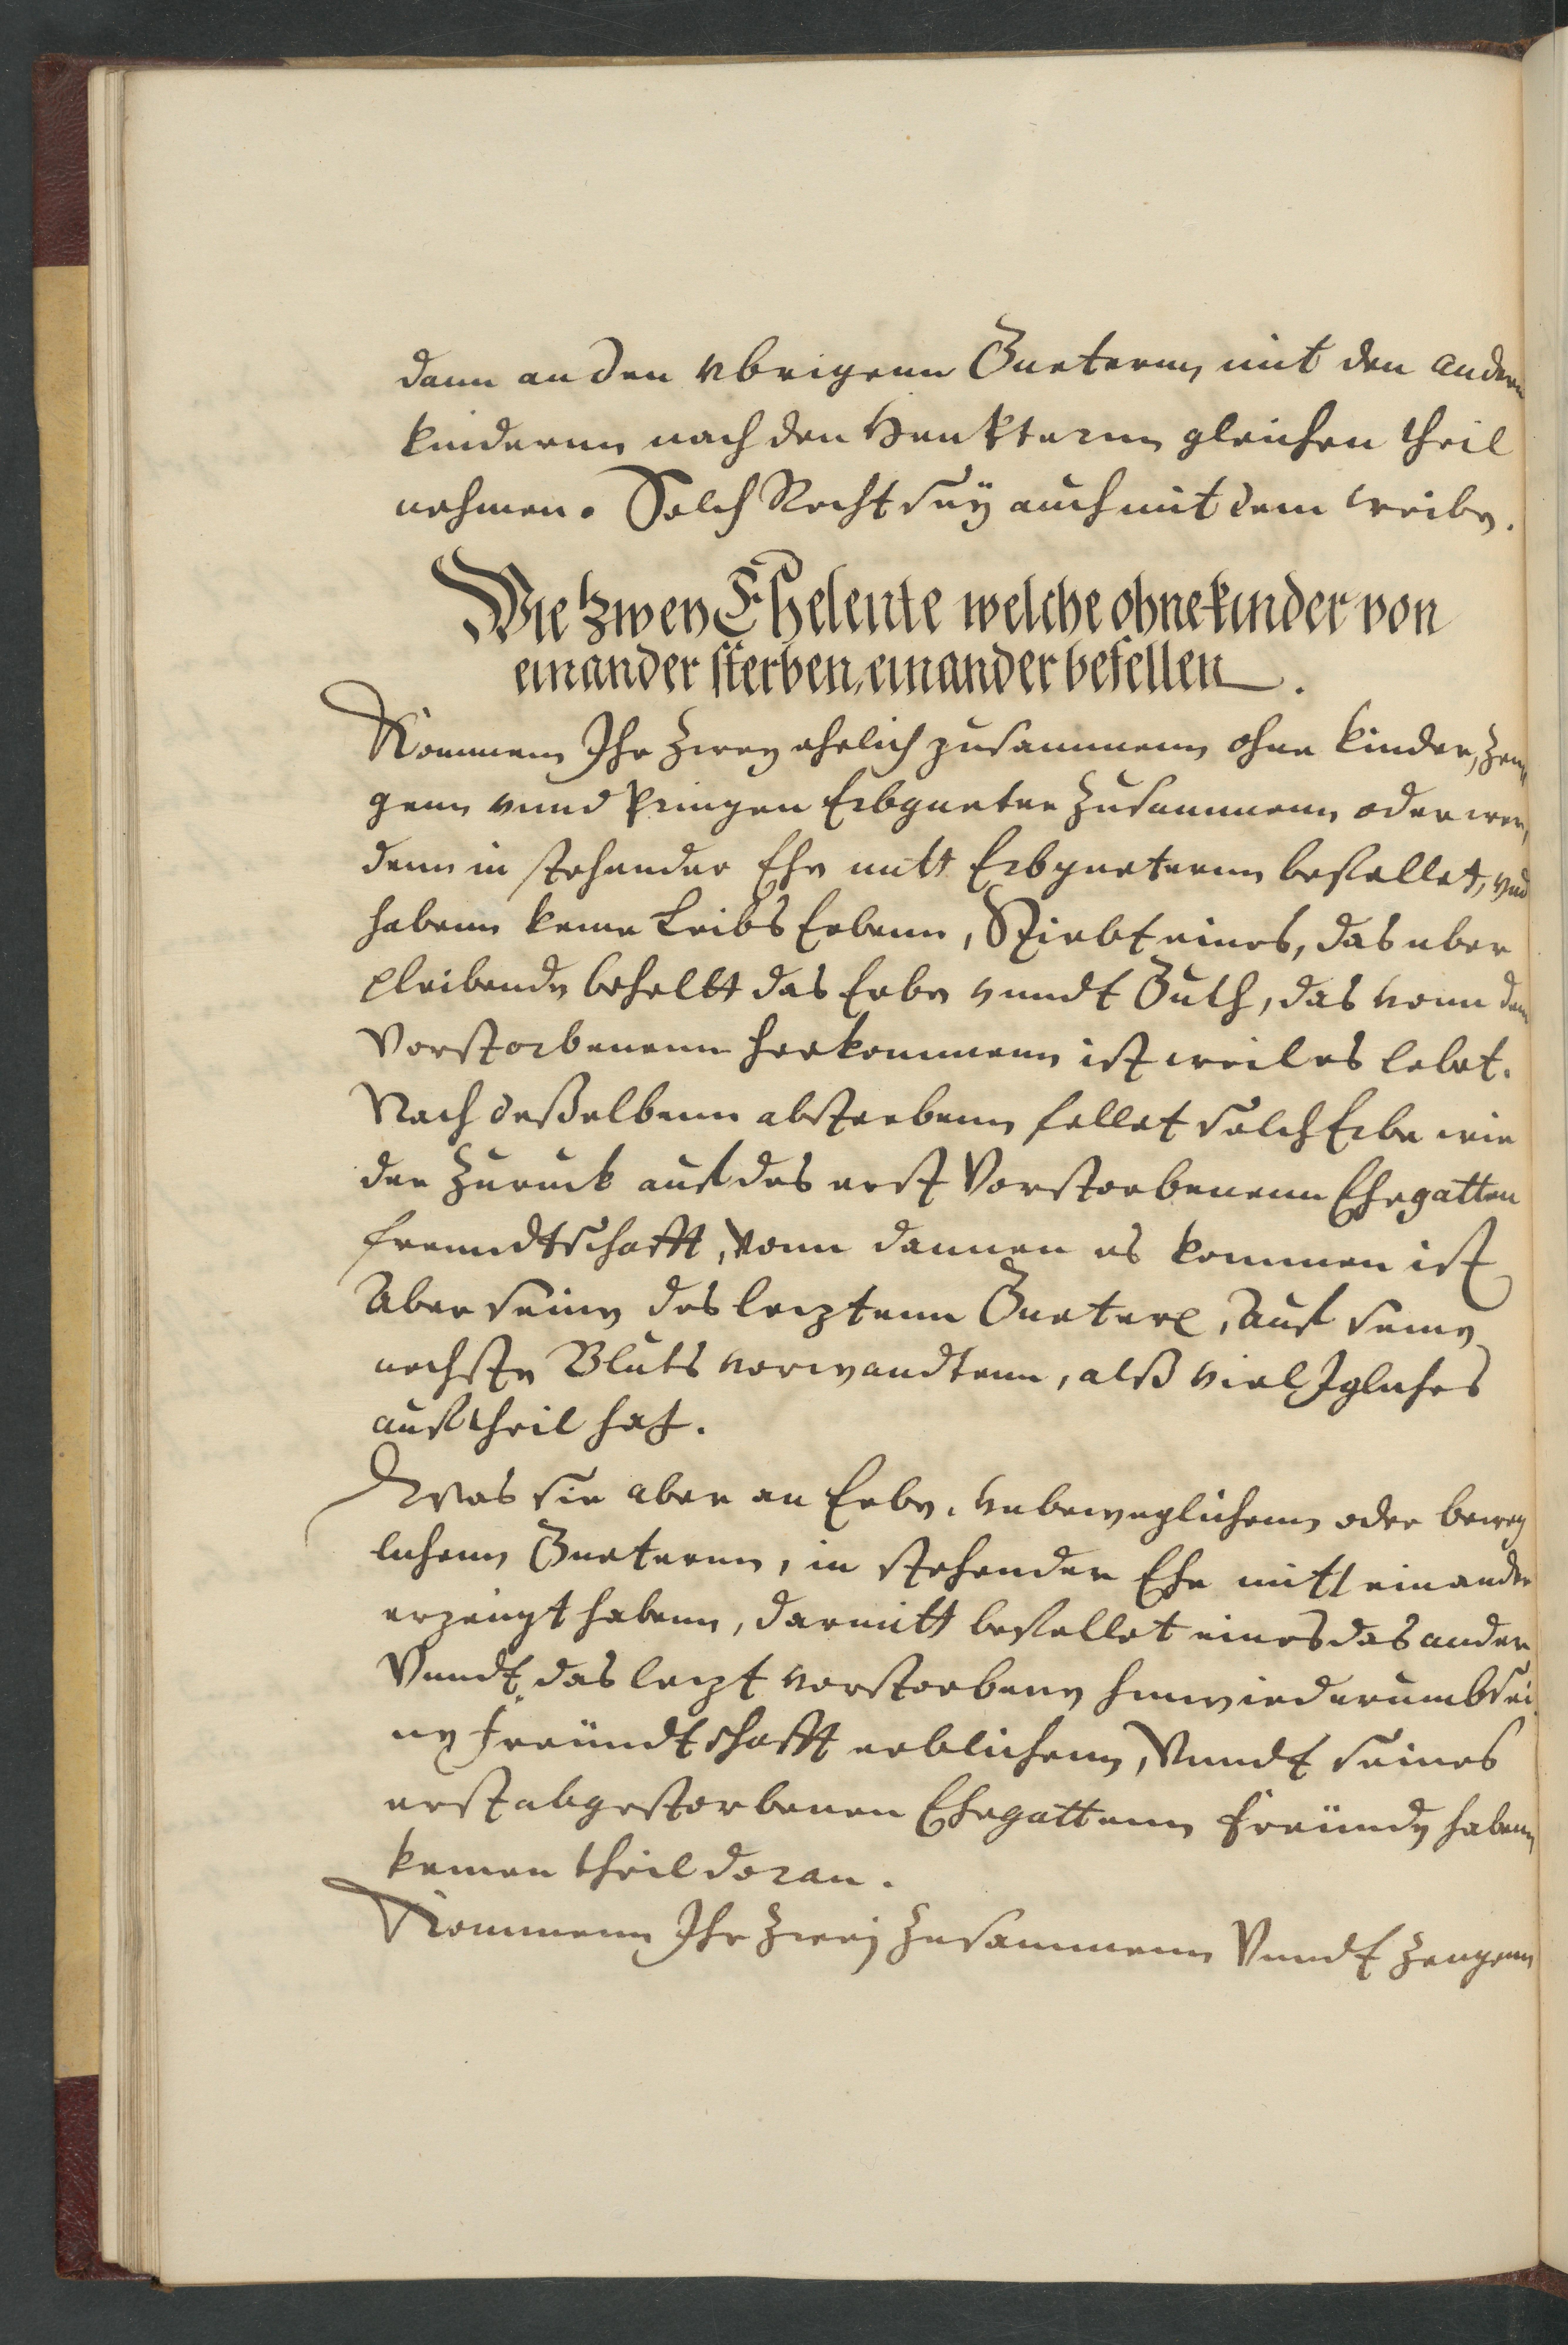 dann an den vbrigenn Guetern, mit den andern
kindernn nach den Heukternn gleichen theil
nehmen. Solch Recht seӱ auch mit dem weibe.
Wie zwey Eheleute welche ohne kinder von
einander sterben, einander befellen.
Kommenn Ihr zwey ehelich zusammenn ohne kinder, zeu„
genn vnnd pringen Erbgueter zusammenn oder wer„
denn in stehender Ehe mitt Erbgueternn befellet, vnd
habenn keine Leibs Erbenn, Stirbt eines, das uber
pleibende behellt das Erbe vnndt Guth, das vonn dem
Vorstorbenenn herkommenn ist weil es lebet.
Nach deßelbenn absterbenn fellet solch Erbe wie
der zuruck auf des erst Vorstorbenenn Ehegatten
freundtschafft, vonn dannen es kommen ist
Aber seine des lecztenn Gueter, auf seine
nechste Bluts vorwandtenn, alß viel Igliches
auftheil hat.
Was sie aber an Erbe, vnbeweglichenn oder beweg
lichenn Gueternn, in stehender Ehe mitt einander
erzeugt habenn, darmitt befellet eines das ander
Vnndt das leczt vorstorbene hinwiederumb sei
ne freündtschafft erblichenn, Vnndt seines
erst abgestorbenen Ehegattenn freünde habenn
keinen theil doran.
Kommenn Ihr zweӱ zusammenn Vnndt zeugenn